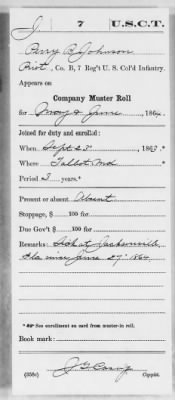 J 7 U.S.C.T.
Perry R Johnson
Priv't, Co. B, 7 Reg't U. S. Col'd Infantry.
Appears on
Company Muster Roll
for May & June, 1864.
Joined for duty and enrolled:
When Sept 23, 1863.*
Where Talbot, Md
Period 3 years.*
Present or absent Absent
Stoppage, $ 100 for
Due Gov't $ 100 for
Remarks: Sick at Jacksonville,
Fla since June 27" 1864
* See enrollment on card from muster-in roll.
Book mark:
(358c) Copyist.